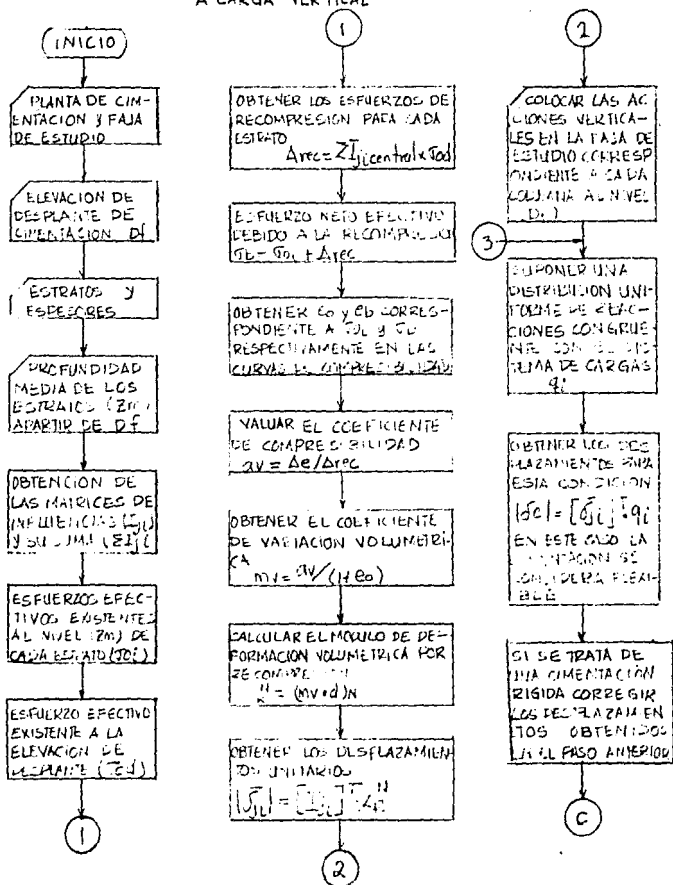 A CARGA VERTICAL
INICIO
PLANTA DE CIM-
ENTACION Y FAJA
DE ESTUDIO
ELEVACION DE
DESPLANTE DE
CIMENTACION Df
ESTRATOS Y
ESPESORES
PROFUNDIDAD
MEDIA DE LOS
ESTRATOS (Zm)
APARTIR DE Df
OBTENCION DE
LAS MATRICES DE
INFLUENCIAS (Iji)
Y SU SUMA (ΣIji
ESFUERZOS EFEC-
TIVOS EXISTENTES
AL NIVEL (Zm) DE
CADA ESTRATO (σoi)
ESFUERZO EFECTIVO
EXISTENTE A LA
ELEVACION DE
DESPLANTE (σod)
1
1
OBTENER LOS ESFUERZOS DE
RECOMPRESION PARA CADA
ESTRATO
Δrec = ΣIji central x σod
ESFUERZO NETO EFECTIVO
DEBIDO A LA RECOMPRESION
σb = σoi + Δrec
OBTENER eo y eb CORRES-
PONDIENTE A σoi y σb
RESPECTIVAMENTE EN LAS
CURVAS DE COMPRESIBILIDAD
VALUAR EL COEFICIENTE
DE COMPRESIBILIDAD
av = Δe/Δrec
OBTENER EL COEFICIENTE
DE VARIACION VOLUMETRI-
CA
mv = av/(1+eo)
CALCULAR EL MODULO DE DE-
FORMACION VOLUMETRICA POR
RECOMPRESION
= (mv·d)N
OBTENER LOS DESPLAZAMIEN-
TOS UNITARIOS
2
2
COLOCAR LAS AC
CIONES VERTICA-
LES EN LA FAJA DE
ESTUDIO CORRESP
ONDIENTE A CADA
COLUMNA AL NIVEL
3
SUPONER UNA
DISTRIBUCION UNI-
FORME DE REAC-
CIONES CONGRUE-
NTE CON EL SIS-
TEMA DE CARGAS
qi
OBTENER LOS DES-
PLAZAMIENTOS PARA
ESTA CONDICION
EN ESTE CASO LA
CIMENTACION SE
CONSIDERA FLEXI-
BLE
SI SE TRATA DE
UNA CIMENTACION
RIGIDA CORREGIR
LOS DESPLAZAMIEN
TOS OBTENIDOS
EN EL PASO ANTERIOR
C